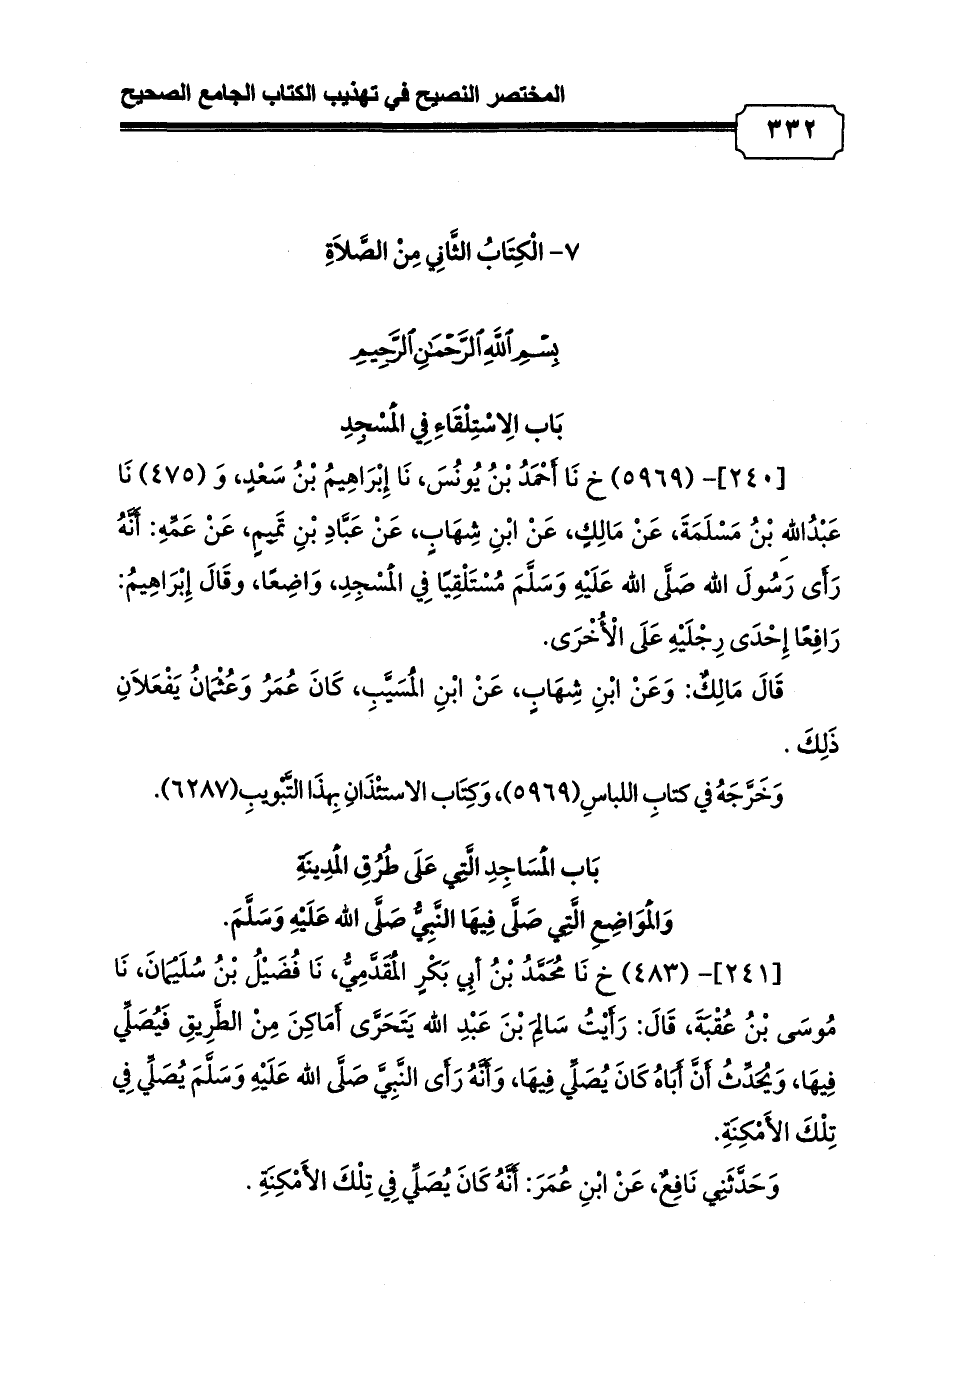 المختصر النصيح في تهذيب الكتاب الجامع الصحيح
٣٣٢
٧- الْكِتَابُ الثَّانِي مِنْ الصَّلاَةِ
بِسْمِ ٱللَّهِ ٱلرَّحْمَٰنِ ٱلرَّحِيمِ
بَاب الِاسْتِلْقَاءِ فِي الْمَسْجِدِ
[٢٤٠]- (٥٩٦٩) خ نَا أَحْمَدُ بْنُ يُونُسَ، نَا إِبْرَاهِيمُ بْنُ سَعْدٍ، وَ (٤٧٥) نَا
عَبْدُالله بْنُ مَسْلَمَةَ، عَنْ مَالِكٍ، عَنْ ابْنِ شِهَابٍ، عَنْ عَبَّادِ بْنِ تَمِيمٍ، عَنْ عَمِّهِ: أَنَّهُ
رَأَى رَسُولَ الله صَلَّى الله عَلَيْهِ وَسَلَّمَ مُسْتَلْقِيًا فِي الْمَسْجِدِ، وَاضِعًا، وقَالَ إِبْرَاهِيمُ:
رَافِعًا إِحْدَى رِجْلَيْهِ عَلَى الْأُخْرَى.
قَالَ مَالِكٌ: وَعَنْ ابْنِ شِهَابٍ، عَنْ ابْنِ الْمُسَيَّبِ، كَانَ عُمَرُ وَعُثْمَانُ يَفْعَلاَنِ
ذَلِكَ .
وَخَرَّجَهُ في كتابِ اللباسِ (٥٩٦٩)، وَكِتَاب الاستئْذَانِ بِهذَا التَّبْويبِ(٦٢٨٧).
بَاب الْمَسَاجِدِ الَّتِي عَلَى طُرُقِ الْمَدِينَةِ
وَالْمَوَاضِعِ الَّتِي صَلَّى فِيهَا النَّبِيُّ صَلَّى الله عَلَيْهِ وَسَلَّمَ.
[٢٤١]- (٤٨٣) خ نَا مُحَمَّدُ بْنُ أَبِي بَكْرٍ الْمُقَدَّمِيُّ، نَا فُضَيْلُ بْنُ سُلَيْمَانَ، نَا
مُوسَى بْنُ عُقْبَةَ، قَالَ: رَأَيْتُ سَالِمَ بْنَ عَبْدِ الله يَتَحَرَّى أَمَاكِنَ مِنْ الطَّرِيقِ فَيُصَلِّي
فِيهَا، وَيُحَدِّثُ أَنَّ أَبَاهُ كَانَ يُصَلِّي فِيهَا، وَأَنَّهُ رَأَى النَّبِيَّ صَلَّى الله عَلَيْهِ وَسَلَّمَ يُصَلِّي فِي
تِلْكَ الأَمْكِنَةِ.
وَحَدَّثَنِي نَافِعٌ، عَنْ ابْنِ عُمَرَ: أَنَّهُ كَانَ يُصَلِّي فِي تِلْكَ الأَمْكِنَةِ .